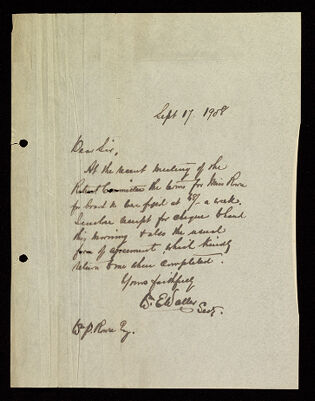 Sept 17. 1908
Dear Sir,
At the recent meeting of the
Committee the terms for Miss Rowe
for board to be fixed at a week.
I enclose receipt for cheque to hand
this morning & also the usual
form of agreement, which kindly
return to me when completed.
Yours faithfully
E Waller
Secy.
Rowe Esq.